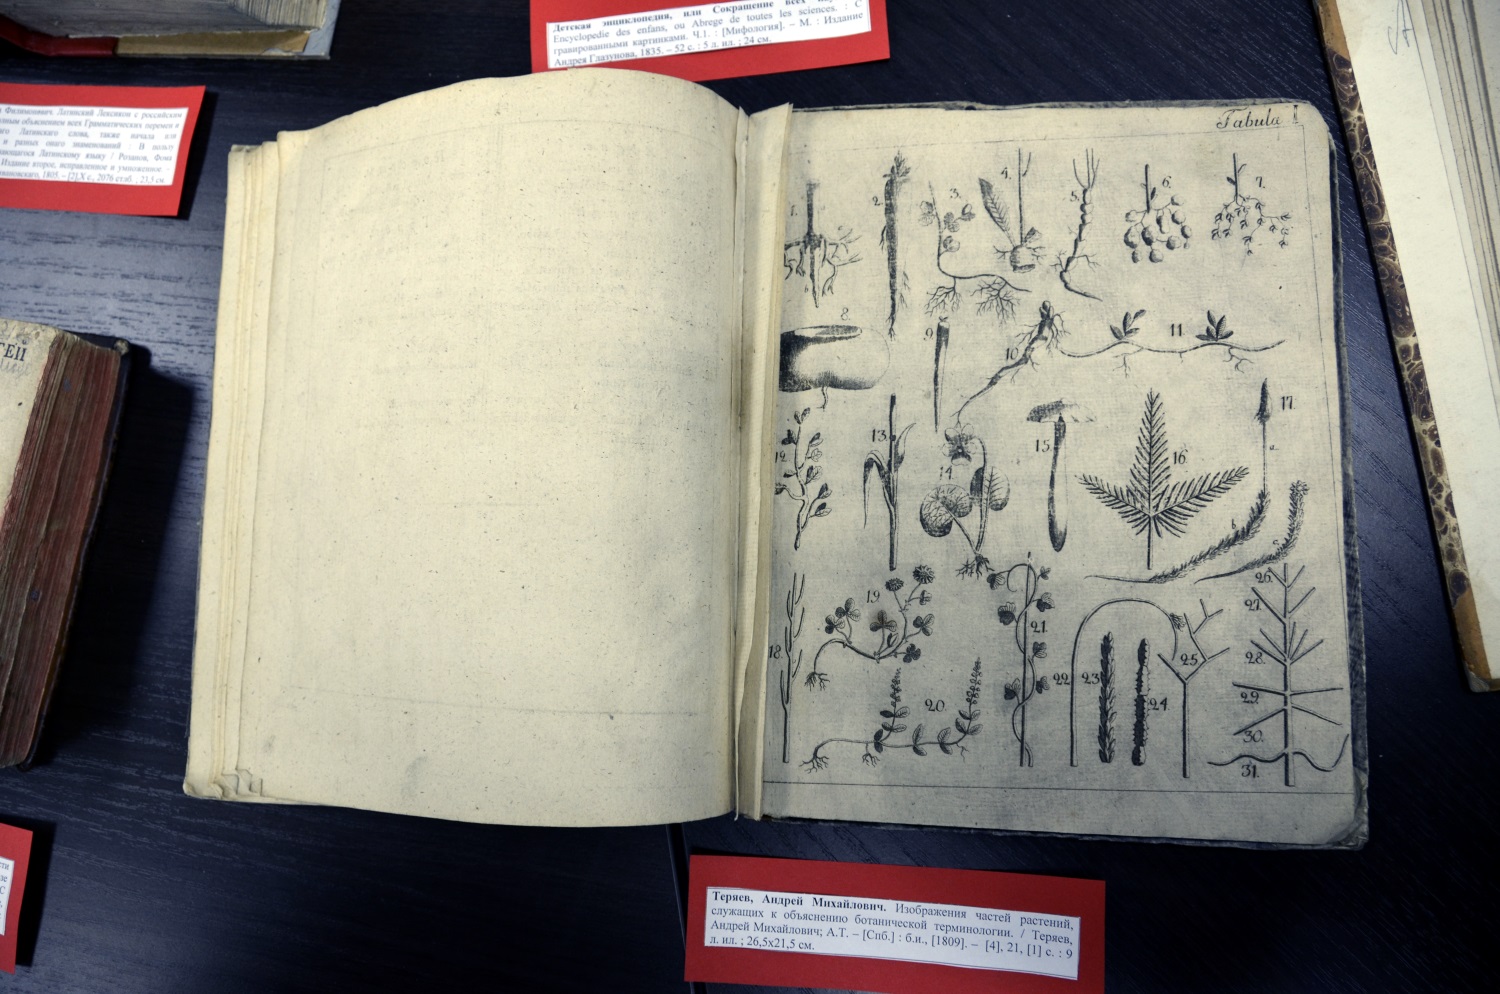 Детская энциклопедия, или Сокращение всех
Encyclopedie des enfans, ou Abrege de toutes les sciences. : С
гравированными картинками. Ч.1. : [Мифология]. – М. : Издание
Андрея Глазунова, 1835. – 52 с. : 5 л. ил. ; 24 см.
Филимонович. Латинский Лексикон с российским
объяснением всех Грамматических перемен и
Латинскаго слова, также начала или
и разных онаго знаменований : В пользу
Латинскому языку / Розанов, Фома
Издание второе, исправленное и умноженное. –
1805. – [2],X с., 2076 стлб. ; 23,5 см
Tabula I
1.
2.
3.
4.
5.
6.
7.
8.
9.
10.
11.
12.
13.
14.
15.
16.
17.
a.
b.
c.
18.
19.
20.
21.
22.
23.
24.
25.
26.
27.
28.
29.
30.
31.
Теряев, Андрей Михайлович. Изображения частей растений,
служащих к объяснению ботанической терминологии. / Теряев,
Андрей Михайлович; А.Т. – [Спб.] : б.и., [1809]. – [4], 21, [1] с. : 9
л. ил. ; 26,5x21,5 см.